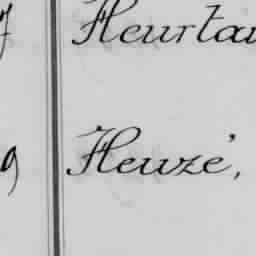 7 Heurtau
9 Heuzé,